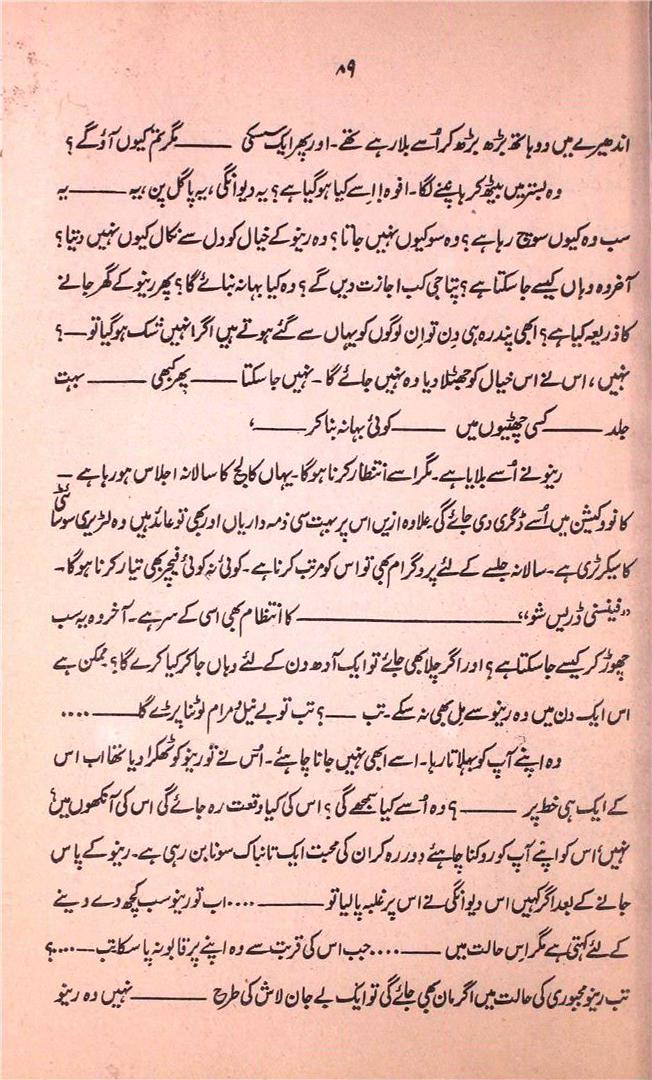 ۸۹
اندھیرے میں دو ہاتھ بڑھ بڑھ کر اُسے بلا رہے تھے۔ اور پھر ایک سسکی ——— مگر تم کیوں آؤ گے؟
وہ بستر میں بیٹھ کر ہانپنے لگا۔ افوہ! اِسے کیا ہو گیا ہے؟ یہ دیوانگی، یہ پاگل پن، یہ ——— یہ
سب وہ کیوں سوچ رہا ہے؟ وہ سو کیوں نہیں جاتا؟ وہ رینو کے خیال کو دل سے نکال کیوں نہیں دیتا؟
آخر وہ وہاں کیسے جا سکتا ہے؟ پتا جی کب اجازت دیں گے؟ وہ کیا بہانہ بنائے گا؟ پھر رینو کے گھر جانے
کا ذریعہ کیا ہے؟ ابھی پندرہ ہی دِن تو اِن لوگوں کو یہاں سے گئے ہوتے ہیں اگر انہیں شک ہو گیا تو —؟
نہیں، اس نے اس خیال کو جھٹلا دیا وہ نہیں جائے گا۔ نہیں جا سکتا —— پھر کبھی ——— بہت
جلد ——— کسی چھٹیوں میں ——— کوئی بہانہ بنا کر ———،
رینو نے اُسے بلایا ہے۔ مگر اسے انتظار کرنا ہوگا۔ یہاں کالج کا سالانہ اجلاس ہو رہا ہے —
کانووکیشن میں اُسے ڈگری دی جائے گی علاوہ ازیں اس پر بہت سی ذمہ داریاں اور بھی تو عائد ہیں وہ لٹریری سوسائٹی
کا سیکرٹری ہے۔ سالانہ جلسے کے لئے پروگرام بھی تو اس کو مرتب کرنا ہے۔ کوئی نہ کوئی فیچر بھی تیار کرنا ہوگا۔
"فینسی ڈریس شو" ——————— کا انتظام بھی اسی کے سر ہے۔ آخر وہ یہ سب
چھوڑ کر کیسے جا سکتا ہے؟ اور اگر چلا بھی جائے تو ایک آدھ دن کے لئے وہاں جا کر کیا کرے گا؟ ممکن ہے
اس ایک دن میں وہ رینو سے مل بھی نہ سکے۔ تب ——؟ تب تو بے نیلِ مرام لوٹنا پڑے گا ——....
وہ اپنے آپ کو بہلاتا رہا۔ اسے ابھی نہیں جانا چاہئے۔ اُس نے تو رینو کو ٹھکرا دیا تھا اب اس
کے ایک ہی خط پر ———؟ وہ اُسے کیا سمجھے گی؟ اس کی کیا وقعت رہ جائے گی اس کی آنکھوں میں؟
نہیں اس کو اپنے آپ کو روکنا چاہئے دور رہ کر ان کی محبت ایک تابناک سونا بن رہی ہے۔ رینو کے پاس
جانے کے بعد اگر کہیں اس دیوانگی نے اس پر غلبہ پا لیا تو ———.... اب تو رینو سب کچھ دے دینے
کے لئے کہتی ہے مگر اِس حالت میں ——.... جب اس کی قربت سے وہ اپنے پر قابو نہ پا سکا تب ——....؟
تب رینو مجبوری کی حالت میں اگر مان بھی جائے گی تو ایک بے جان لاش کی طرح ——— نہیں وہ رینو